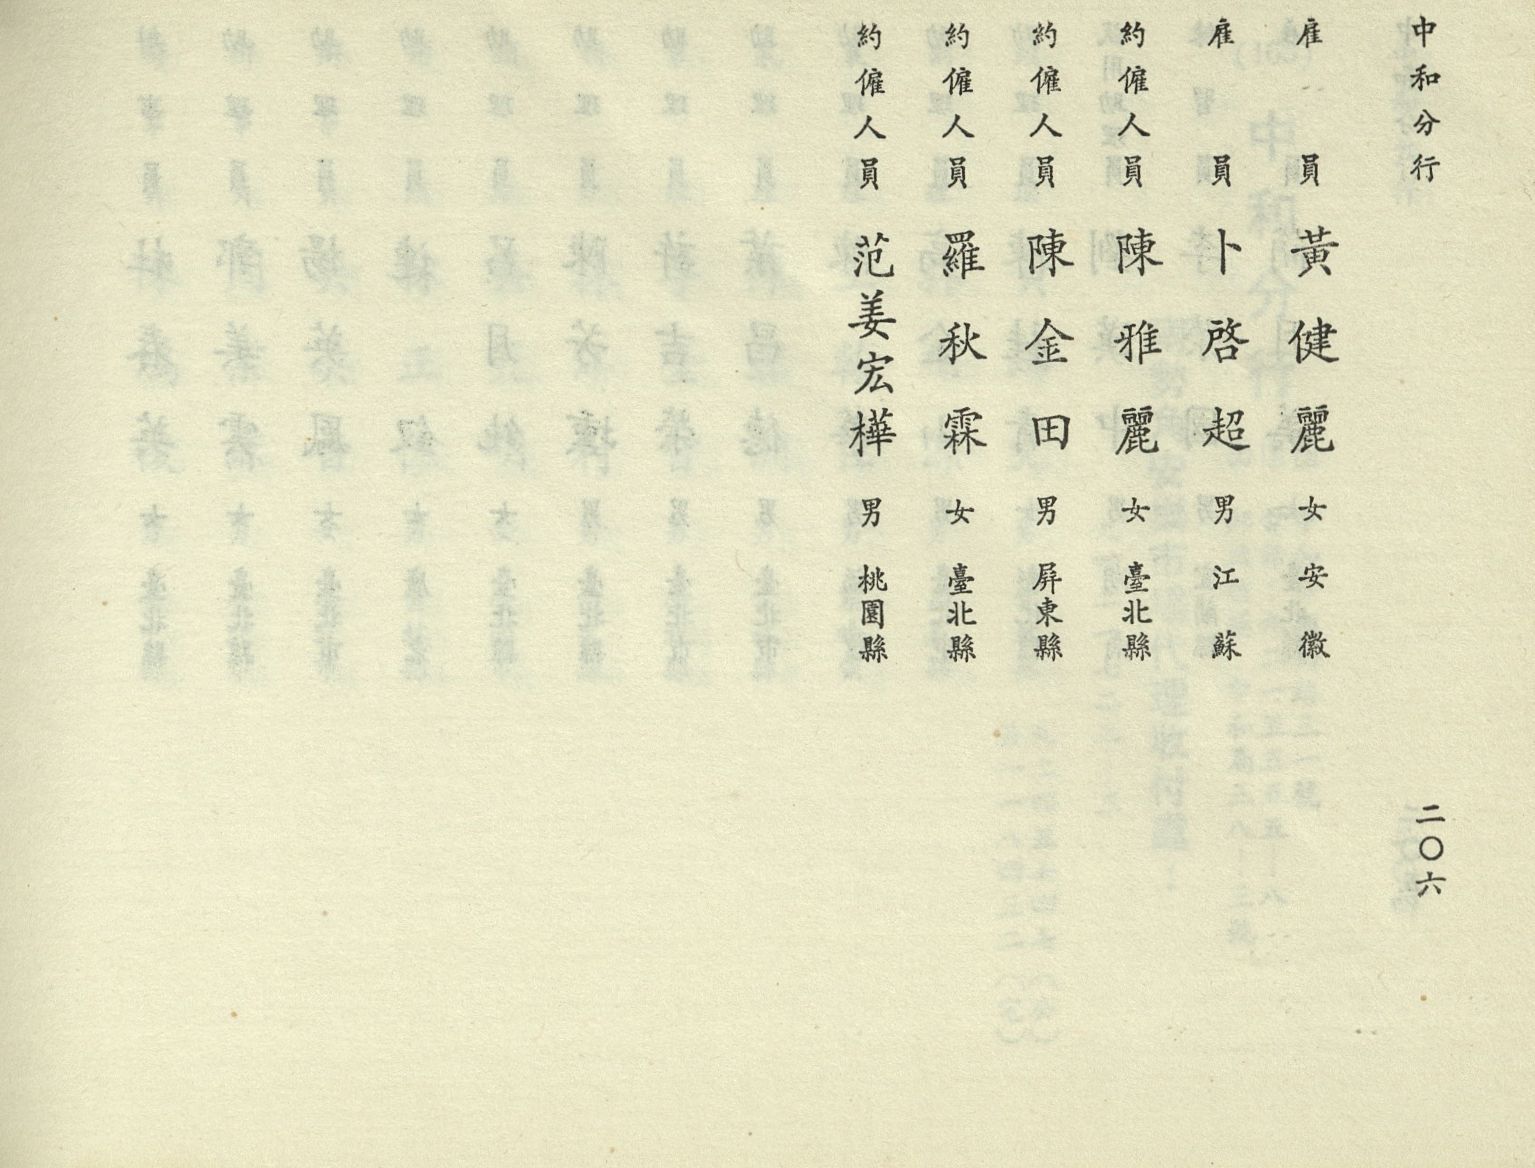 中和分行
二〇六
雇員 黃健麗 女 安徽
雇員 卜啓超 男 江蘇
約僱人員 陳雅麗 女 臺北縣
約僱人員 陳金田 男 屏東縣
約僱人員 羅秋霖 女 臺北縣
約僱人員 范姜宏樺 男 桃園縣